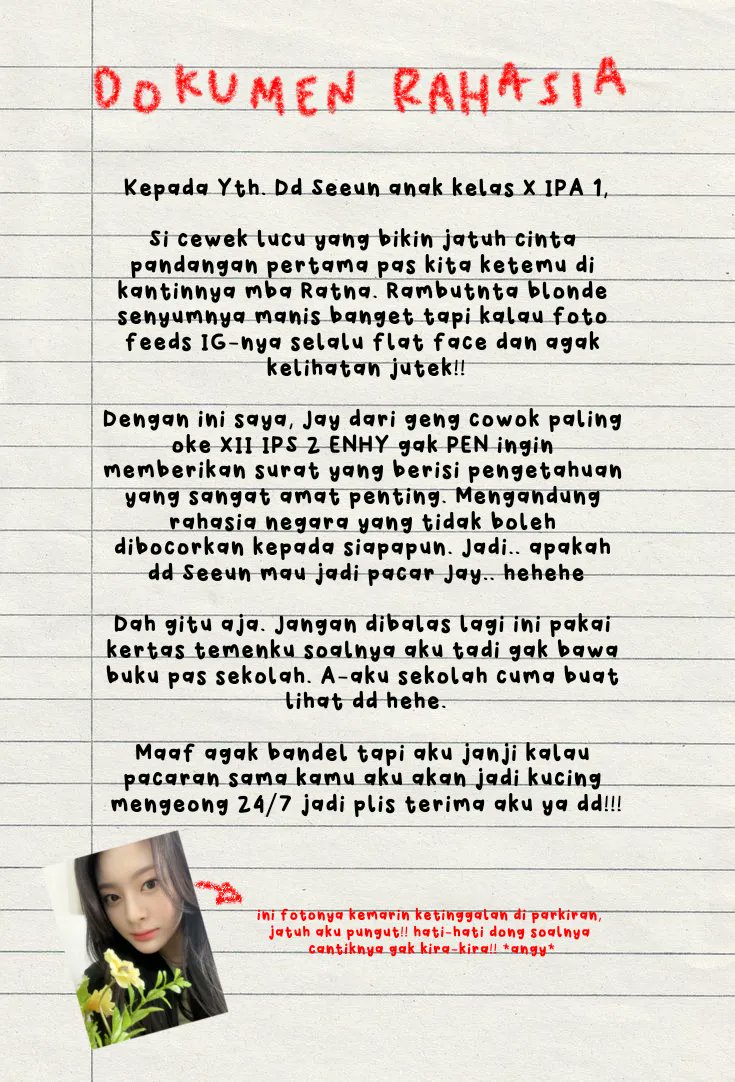 DOKUMEN RAHASIA
Kepada Yth. Dd Seeun anak kelas X IPA 1,
Si cewek lucu yang bikin jatuh cinta
pandangan pertama pas kita ketemu di
kantinnya mba Ratna. Rambutnta blonde
senyumnya manis banget tapi kalau foto
feeds IG-nya selalu flat face dan agak
kelihatan jutek!!
Dengan ini saya, Jay dari geng cowok paling
oke XII IPS 2 ENHY gak PEN ingin
memberikan surat yang berisi pengetahuan
yang sangat amat penting. Mengandung
rahasia negara yang tidak boleh
dibocorkan kepada siapapun. Jadi.. apakah
dd Seeun mau jadi pacar Jay.. hehehe
Dah gitu aja. Jangan dibalas lagi ini pakai
kertas temenku soalnya aku tadi gak bawa
buku pas sekolah. A-aku sekolah cuma buat
lihat dd hehe.
Maaf agak bandel tapi aku janji kalau
pacaran sama kamu aku akan jadi kucing
mengeong 24/7 jadi plis terima aku ya dd!!!
ini fotonya kemarin ketinggalan di parkiran,
jatuh aku pungut!! hati-hati dong soalnya
cantiknya gak kira-kira!! *angy*